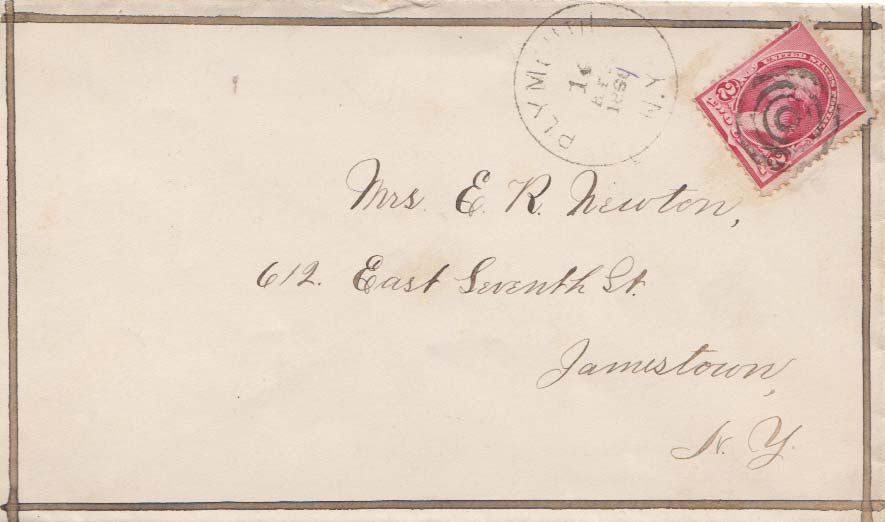 PLYMOUTH N.Y.
UNITED STATES POSTAGE
2
TWO
2
Mrs. E. R. Newton,
612. East Seventh St.
Jamestown,
N. Y.